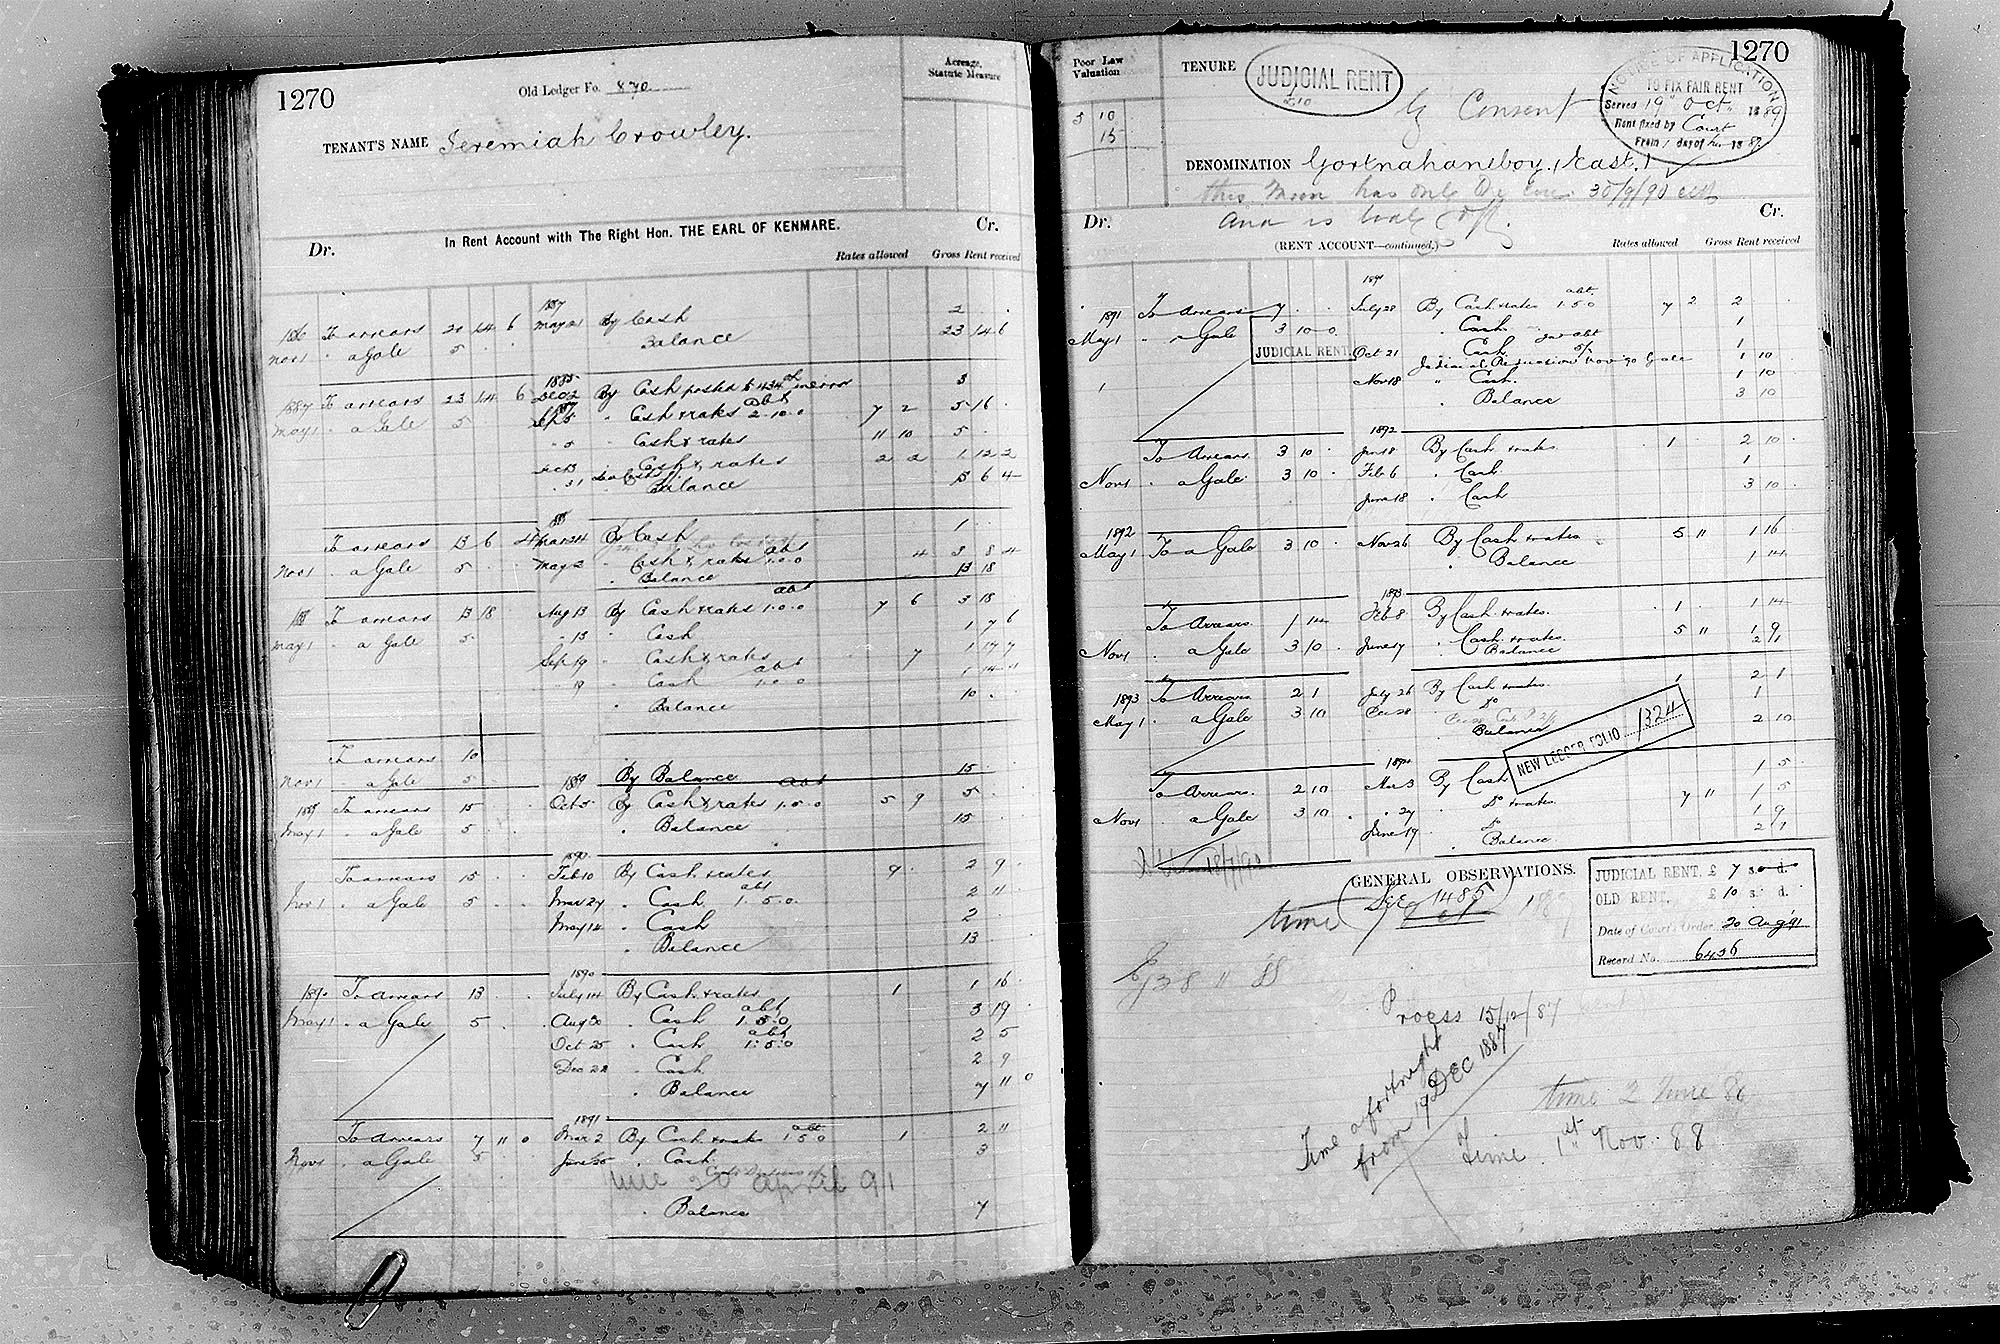 1270
Old Ledger Fo. 870
Acreage, Statute Measure
TENANT'S NAME Jeremiah Crowley.
In Rent Account with The Right Hon. THE EARL OF KENMARE.
Dr. Cr.
Rates allowed Gross Rent received
1887
1886 To arrears 20 14 6 May 21 By Cash 2 . .
Nov 1 . a Gale 5 . . Balance 23 14 6
1885
1887 To arrears 23 14 6 Dec 2 By Cash posted to 434 3
May 1 . a Gale 5 . Sep 5 . Cash & rates abt 2.10.0 7 2 5 16 .
. 5 . Cash & rates 11 10 5 .
Oct 13 Cash & rates 2 2 1 12 2
. 31 Balance 13 6 4
To arrears 13 6 4 Mar 24 By Cash 1 .
Nov 1 . a Gale 5 . . May 2 . Cash & rates abt 1.0.0 4 3 8 4
. Balance 13 18
To arrears 13 18 . Aug 13 By Cash & rates abt 1.0.0 7 6 3 18 .
May 1 . a Gale 5 . . 13 . Cash 1 7 6
Sep 19 . Cash & rates 7 1 17 7
. 19 . Cash abt 1.0.0 1 14 11
. Balance 10 . .
To arrears 10
Nov 1 a Gale 5 . . By Balance 15 .
1889
1889 To arrears 15 . . Oct 5 By Cash & rates abt 1.5.0 5 9 5 .
May 1 . a Gale 5 . . . Balance 15 .
1890
To arrears 15 . . Feb 10 By Cash & rates 9 . 2 9 .
Nov 1 . a Gale 5 . . Mar 27 . Cash abt 1.5.0 2 11 .
May 14 . Cash 2 . .
. Balance 13 . .
1890
1890 To arrears 13 . . July 14 By Cash & rates 1 . 1 16 .
May 1 . a Gale 5 . . Aug 30 . Cash abt 1.5.0 3 19 .
Oct 25 . Cash abt 1.5.0 2 5
Dec 22 . Cash 2 9
. Balance 7 11 0
1891
To arrears 7 11 0 Mar 2 By Cash & rates abt 1 5 0 1 2 11
Nov 1 . a Gale 5 . June 25 . Cash 3
time 20 April 91
. Balance 7
1270
Poor Law Valuation
5 10
15
TENURE JUDICIAL RENT
£10
By Consent
NOTICE OF APPLICATION
TO FIX FAIR RENT
Served 19" Oct 1889
Rent fixed by Court
From 1 day of Nov 1889
DENOMINATION Gortnahaneboy (East.)
this Moon has only One Cow 30/9/90
Dr. Cr.
(RENT ACCOUNT—continued.)
Rates allowed Gross Rent received
1891
1891 To Arrears 7 . . July 28 By Cash & rates abt. 1.5.0 7 2 2 . .
May 1 . a Gale 3 10 0 . Cash 1
JUDICIAL RENT Oct 21 . Cash 1
Judicial Reduction Nov 90 Gale 1 10
Nov 18 " Cash. 1 10
. Balance 3 10
1892
To Arrears. 3 10 . Jan 18 By Cash & rates. 1 . 2 10 .
Nov 1 . a Gale. 3 10 . Feb 6 . Cash. 1
June 18 . Cash 3 10 .
1892
May 1 To a Gale 3 10 . Nov 26 By Cash & rates 5 11 1 16
. Balance 1 14
1893
To Arrears. 1 14 Feb 8 By Cash & rates. 1 . 1 14
Nov 1 . a Gale 3 10 . June 17 . Cash & rates. 5 11 1 9
Balance 2 1
1893 To Arrears 2 1 July 26 By Cash & rates. 1 2 1
May 1 . a Gale 3 10 Dec 28 . Do 1
Balance 2 10
NEW LEDGER FOLIO 1324
1894
To Arrears. 2 10 Mar 3 By Cash 1 5 .
Nov 1 . a Gale 3 10 . . 27 . Do & rates. 7 11 1 5
June 19 . Do 1 9
. Balance 2 1
18/7/90
GENERAL OBSERVATIONS.
time (See 1485)
JUDICIAL RENT, £ 7 s. d.
OLD RENT, £ 10 s. d.
Date of Court's Order 20 Aug '91
Record No. 6436
Process 15/12/87
Time a fortnight
from 19 DEC 1887
time 2 June 88
Time 1st Nov. 88